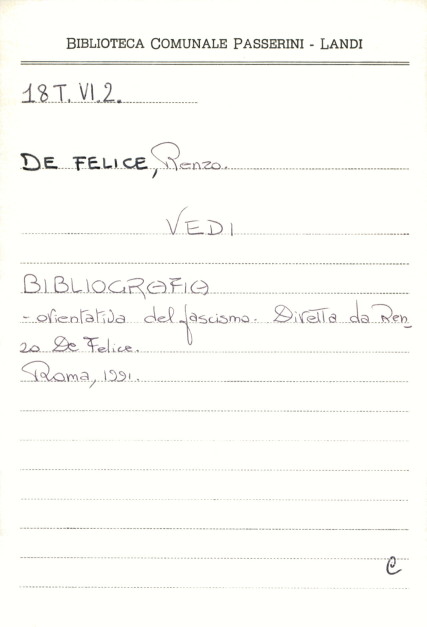 BIBLIOTECA COMUNALE PASSERINI - LANDI
18 T. VI. 2.
DE FELICE, Renzo.
VEDI
BIBLIOGRAFIA
- orientativa del fascismo. Diretta da Ren
zo De Felice.
Roma, 1991.
C